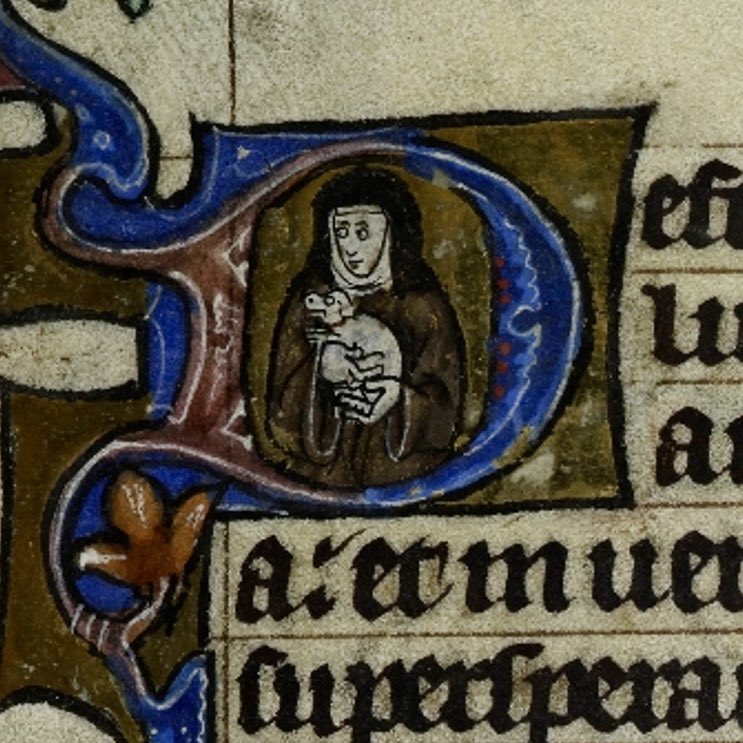 Defi
lu
an
a: et in uer
superspera